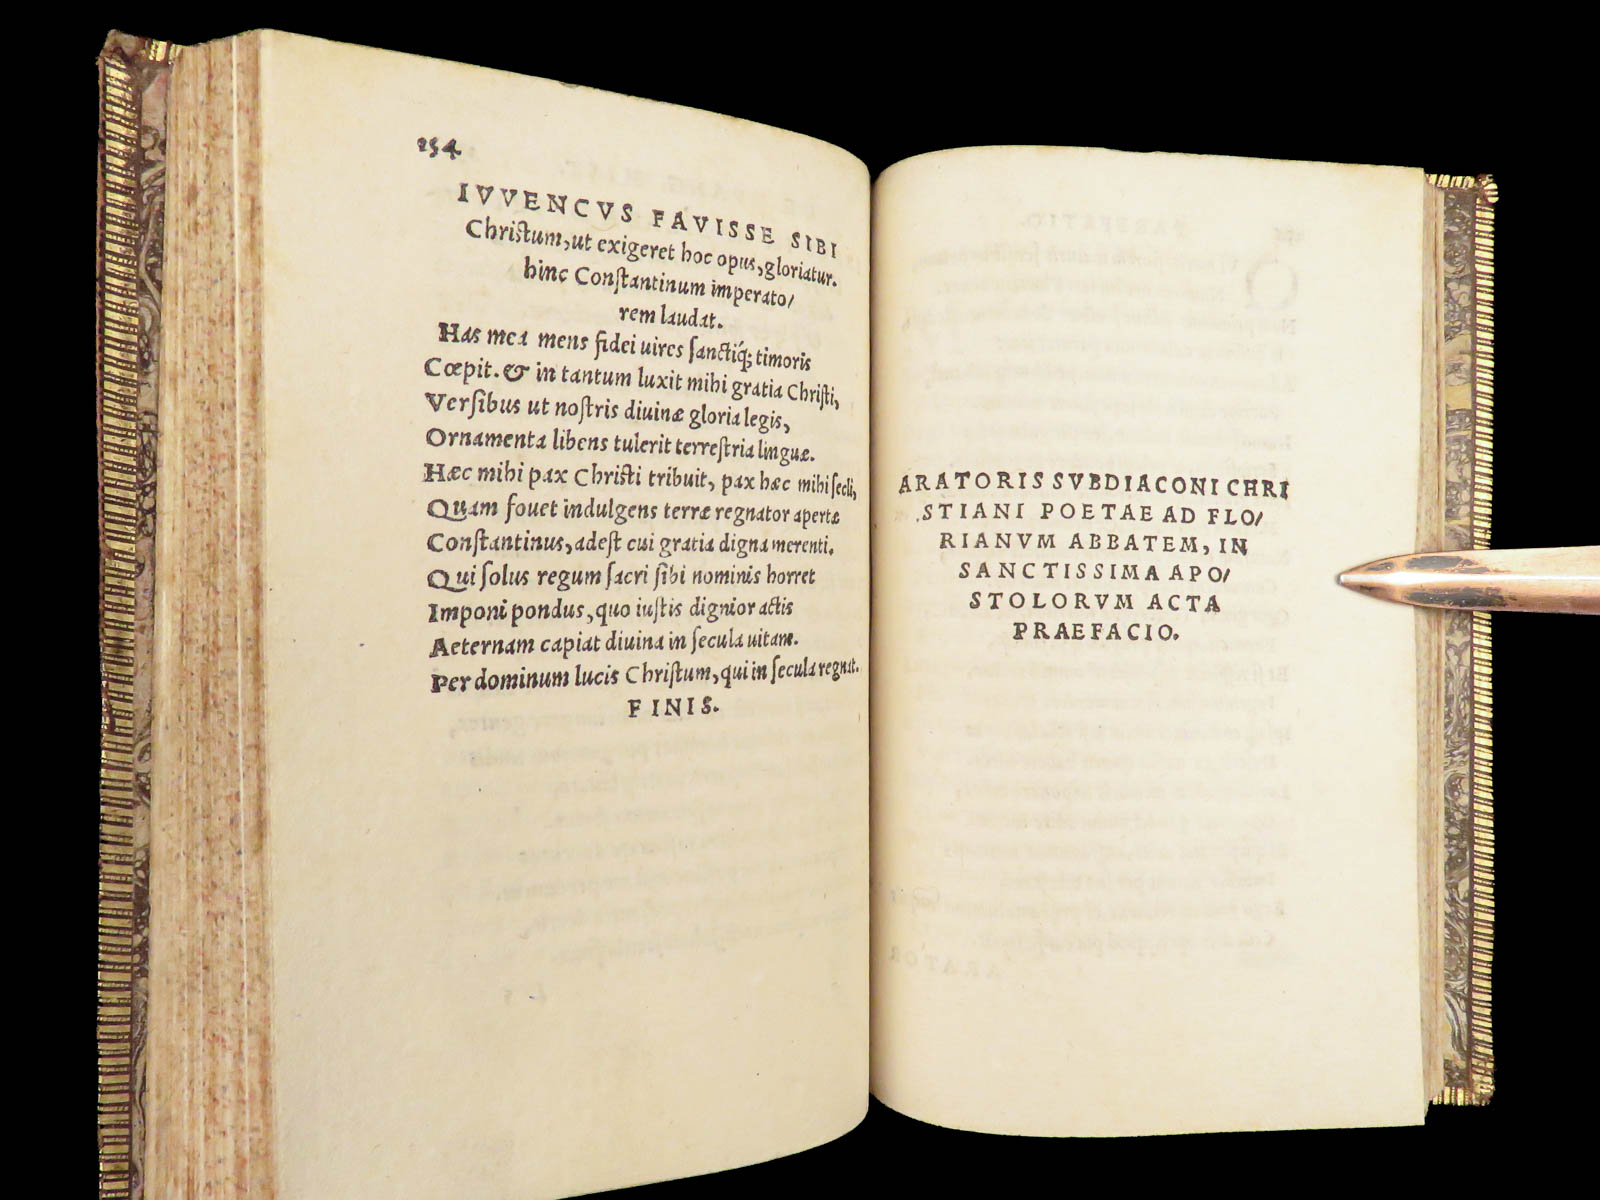 254
IVVENCVS FAVISSE SIBI
Chriſtum, ut exigeret hoc opus, gloriatur.
hinc Conſtantinum imperato/
rem laudat.
Has mea mens fidei uires ſanctiq́; timoris
Cœpit. & in tantum luxit mihi gratia Chriſti,
Verſibus ut noſtris diuinæ gloria legis,
Ornamenta libens tulerit terreſtria linguæ.
Hæc mihi pax Chriſti tribuit, pax hæc mihi ſecli,
Quam fouet indulgens terræ regnator apertæ
Conſtantinus, adeſt cui gratia digna merenti.
Qui ſolus regum ſacri ſibi nominis horret
Imponi pondus, quo iuſtis dignior actis
Aeternam capiat diuina in ſecula uitam.
Per dominum lucis Chriſtum, qui in ſecula regnat.
FINIS.
ARATORIS SVBDIACONI CHRI
STIANI POETAE AD FLO/
RIANVM ABBATEM, IN
SANCTISSIMA APO/
STOLORVM ACTA
PRAEFACIO.